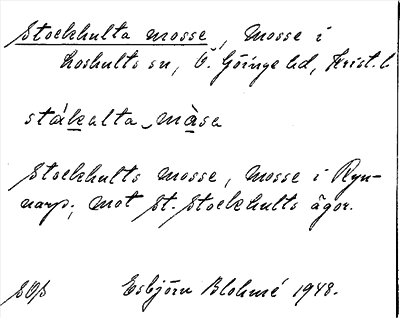 Stockhulta mosse, mosse i
Loshults sn, Ö. Göinge hd, Krist. l
stákalta màsa
Stockhults mosse, mosse i Ryn-
narp; mot St. Stockhults ägor.
Esbjörn Blohmé 1948.